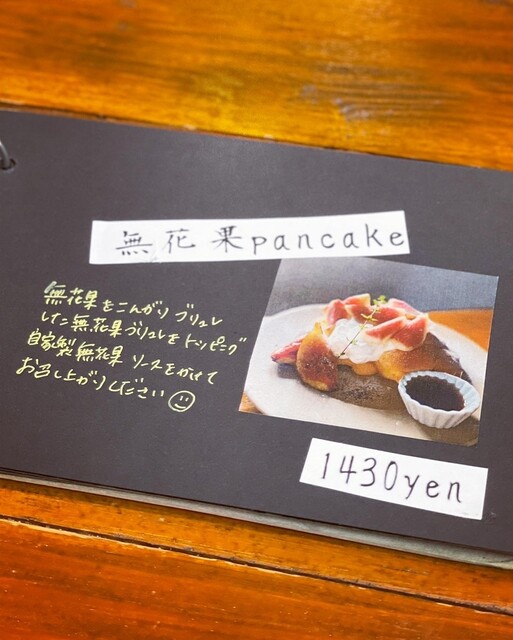 無花果pancake
無花果をこんがりブリュレ
した無花果ブリュレをトッピング
自家製無花果ソースをかけて
お召し上がりください
1430yen